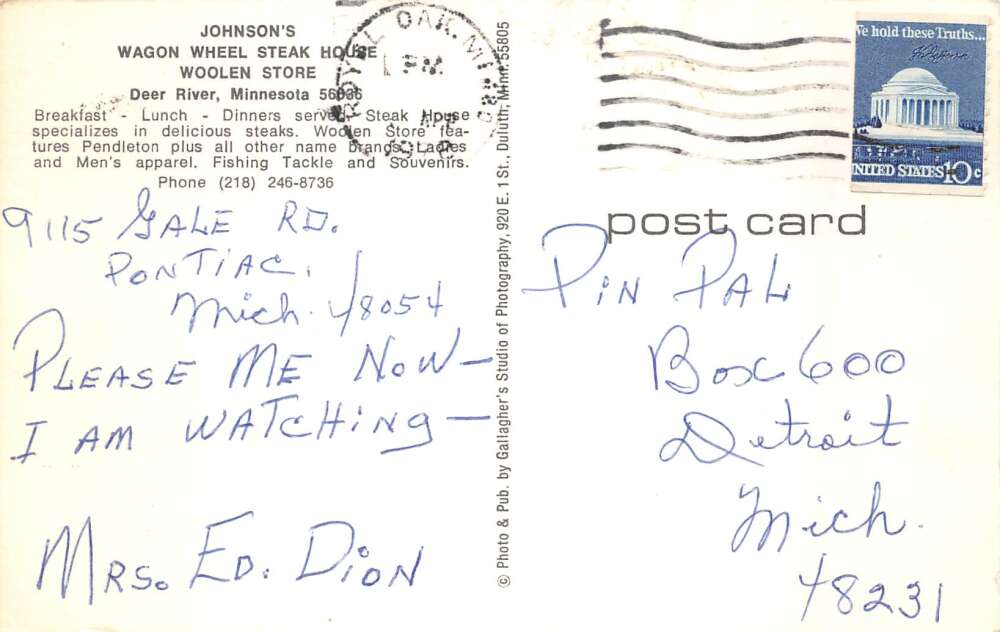 JOHNSON'S
WAGON WHEEL STEAK HOUSE
WOOLEN STORE
Deer River, Minnesota 56636
Breakfast - Lunch - Dinners served. Steak House
specializes in delicious steaks. Woolen Store fea-
tures Pendleton plus all other name brands. Ladies
and Men's apparel. Fishing Tackle and Souvenirs.
Phone (218) 246-8736
9115 GALE RD.
PONTIAC,
Mich. 48054
PLEASE ME NOW—
I AM WATCHING—
MRS. ED. DION
© Photo & Pub. by Gallagher's Studio of Photography, 920 E. 1 St., Duluth, Minn. 55805
ROYAL OAK, MI
PM
We hold these Truths...
UNITED STATES 10c
post card
PIN PAL
Box 600
Detroit
Mich.
48231